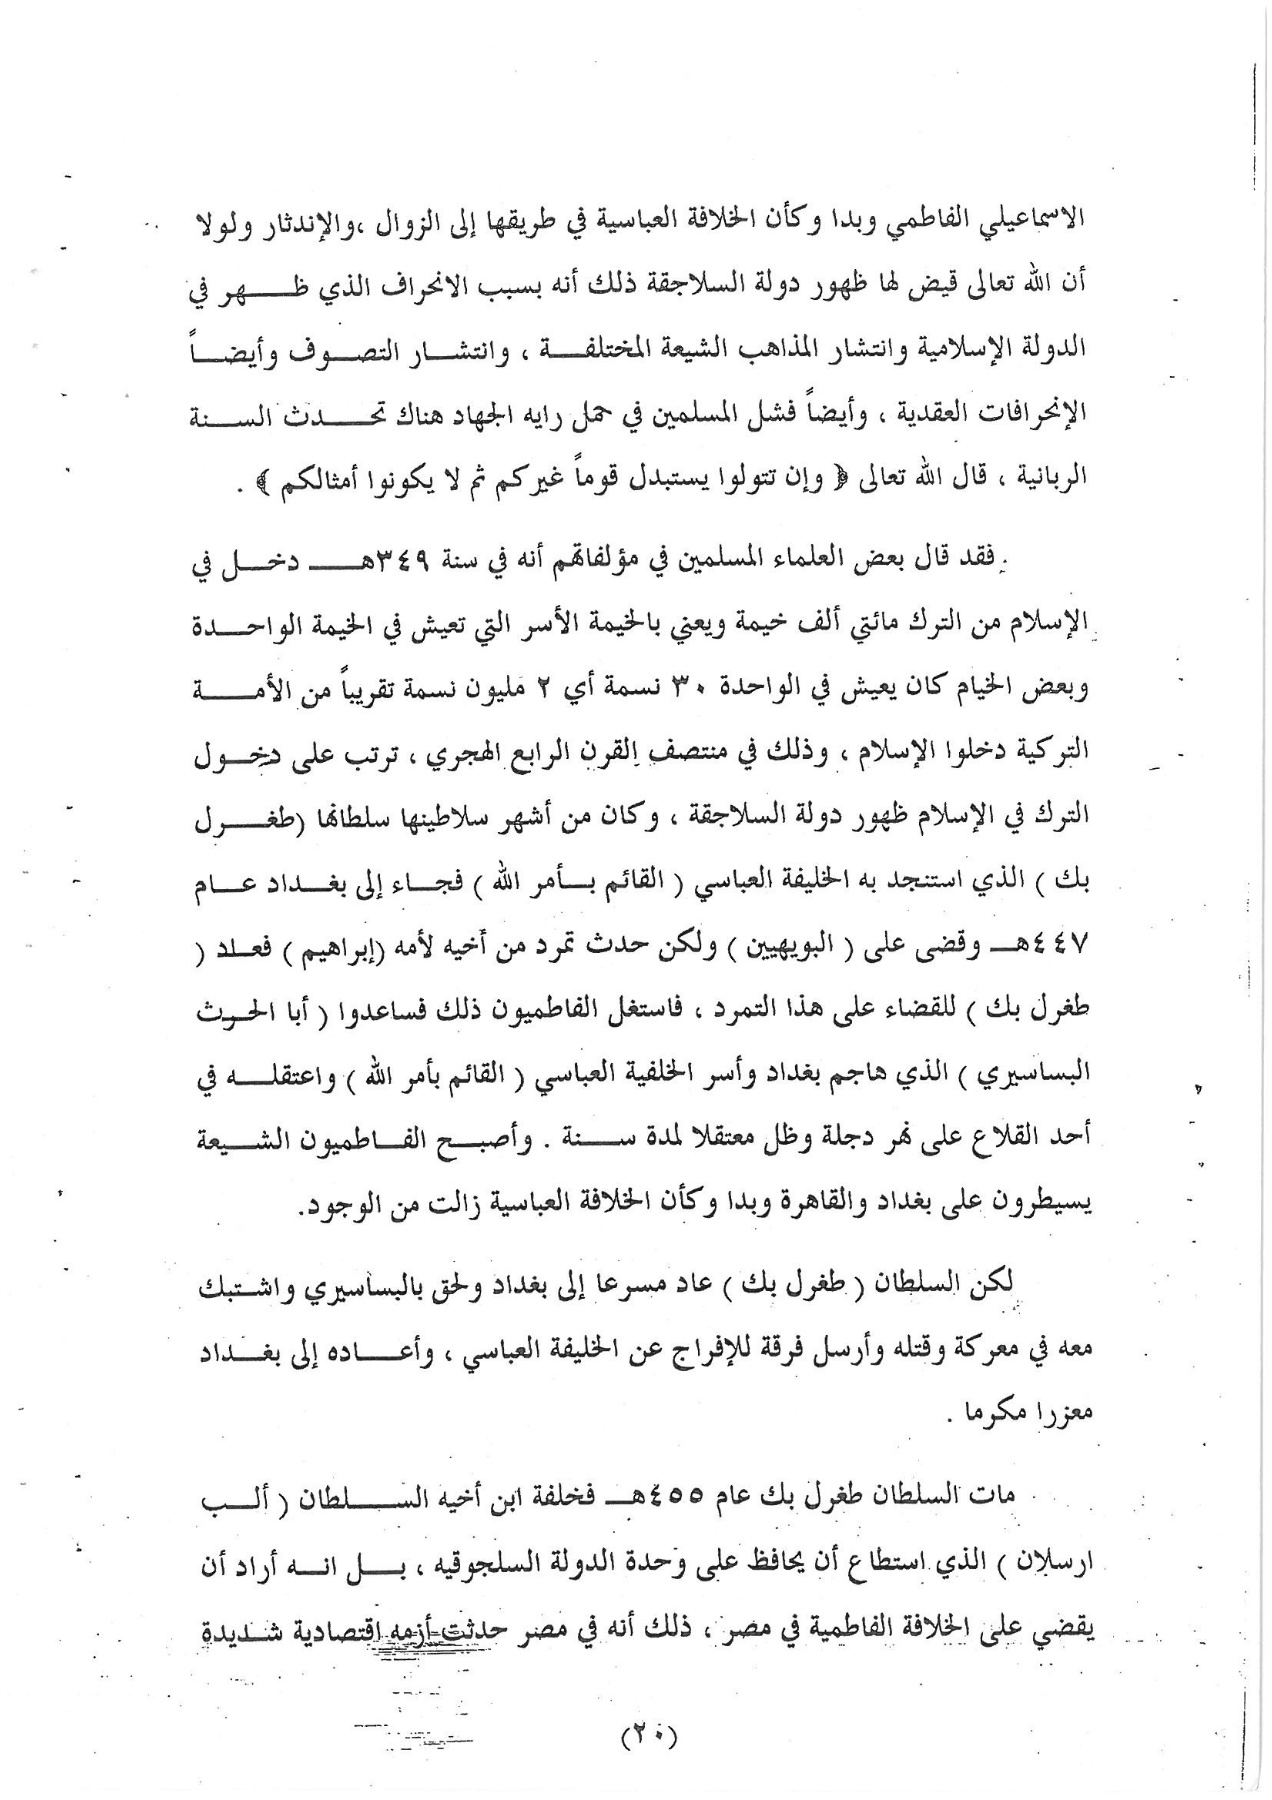 الاسماعيلي الفاطمي وبدا وكأن الخلافة العباسية في طريقها إلى الزوال ،والإندثار ولولا
أن الله تعالى قيض لها ظهور دولة السلاجقة ذلك أنه بسبب الانحراف الذي ظهر في
الدولة الإسلامية وانتشار المذاهب الشيعة المختلفة ، وانتشار التصوف وأيضاً
الإنحرافات العقدية ، وأيضاً فشل المسلمين في حمل رايه الجهاد هناك تحدث السنة
الربانية ، قال الله تعالى ﴿ وإن تتولوا يستبدل قوماً غيركم ثم لا يكونوا أمثالكم ﴾ .
فقد قال بعض العلماء المسلمين في مؤلفاتهم أنه في سنة ٣٤٩هـ دخل في
الإسلام من الترك مائتي ألف خيمة ويعني بالخيمة الأسر التي تعيش في الخيمة الواحدة
وبعض الخيام كان يعيش في الواحدة ٣٠ نسمة أي ٢ مليون نسمة تقريباً من الأمة
التركية دخلوا الإسلام ، وذلك في منتصف القرن الرابع الهجري ، ترتب على دخول
الترك في الإسلام ظهور دولة السلاجقة ، وكان من أشهر سلاطينها سلطانها (طغرل
بك ) الذي استنجد به الخليفة العباسي ( القائم بأمر الله ) فجاء إلى بغداد عام
٤٤٧هـ وقضى على ( البويهيين ) ولكن حدث تمرد من أخيه لأمه (إبراهيم ) فعلد (
طغرل بك ) للقضاء على هذا التمرد ، فاستغل الفاطميون ذلك فساعدوا ( أبا الحرث
البساسيري ) الذي هاجم بغداد وأسر الخلفية العباسي ( القائم بأمر الله ) واعتقله في
أحد القلاع على نهر دجلة وظل معتقلا لمدة سنة . وأصبح الفاطميون الشيعة
يسيطرون على بغداد والقاهرة وبدا وكأن الخلافة العباسية زالت من الوجود.
لكن السلطان ( طغرل بك ) عاد مسرعا إلى بغداد ولحق بالبساسيري واشتبك
معه في معركة وقتله وأرسل فرقة للإفراج عن الخليفة العباسي ، وأعاده إلى بغداد
معززا مكرما .
مات السلطان طغرل بك عام ٤٥٥هـ فخلفة ابن أخيه السلطان ( ألب
ارسلان ) الذي استطاع أن يحافظ على وحدة الدولة السلجوقيه ، بل انه أراد أن
يقضي على الخلافة الفاطمية في مصر ، ذلك أنه في مصر حدثت أزمه اقتصادية شديدة
(٢٠)